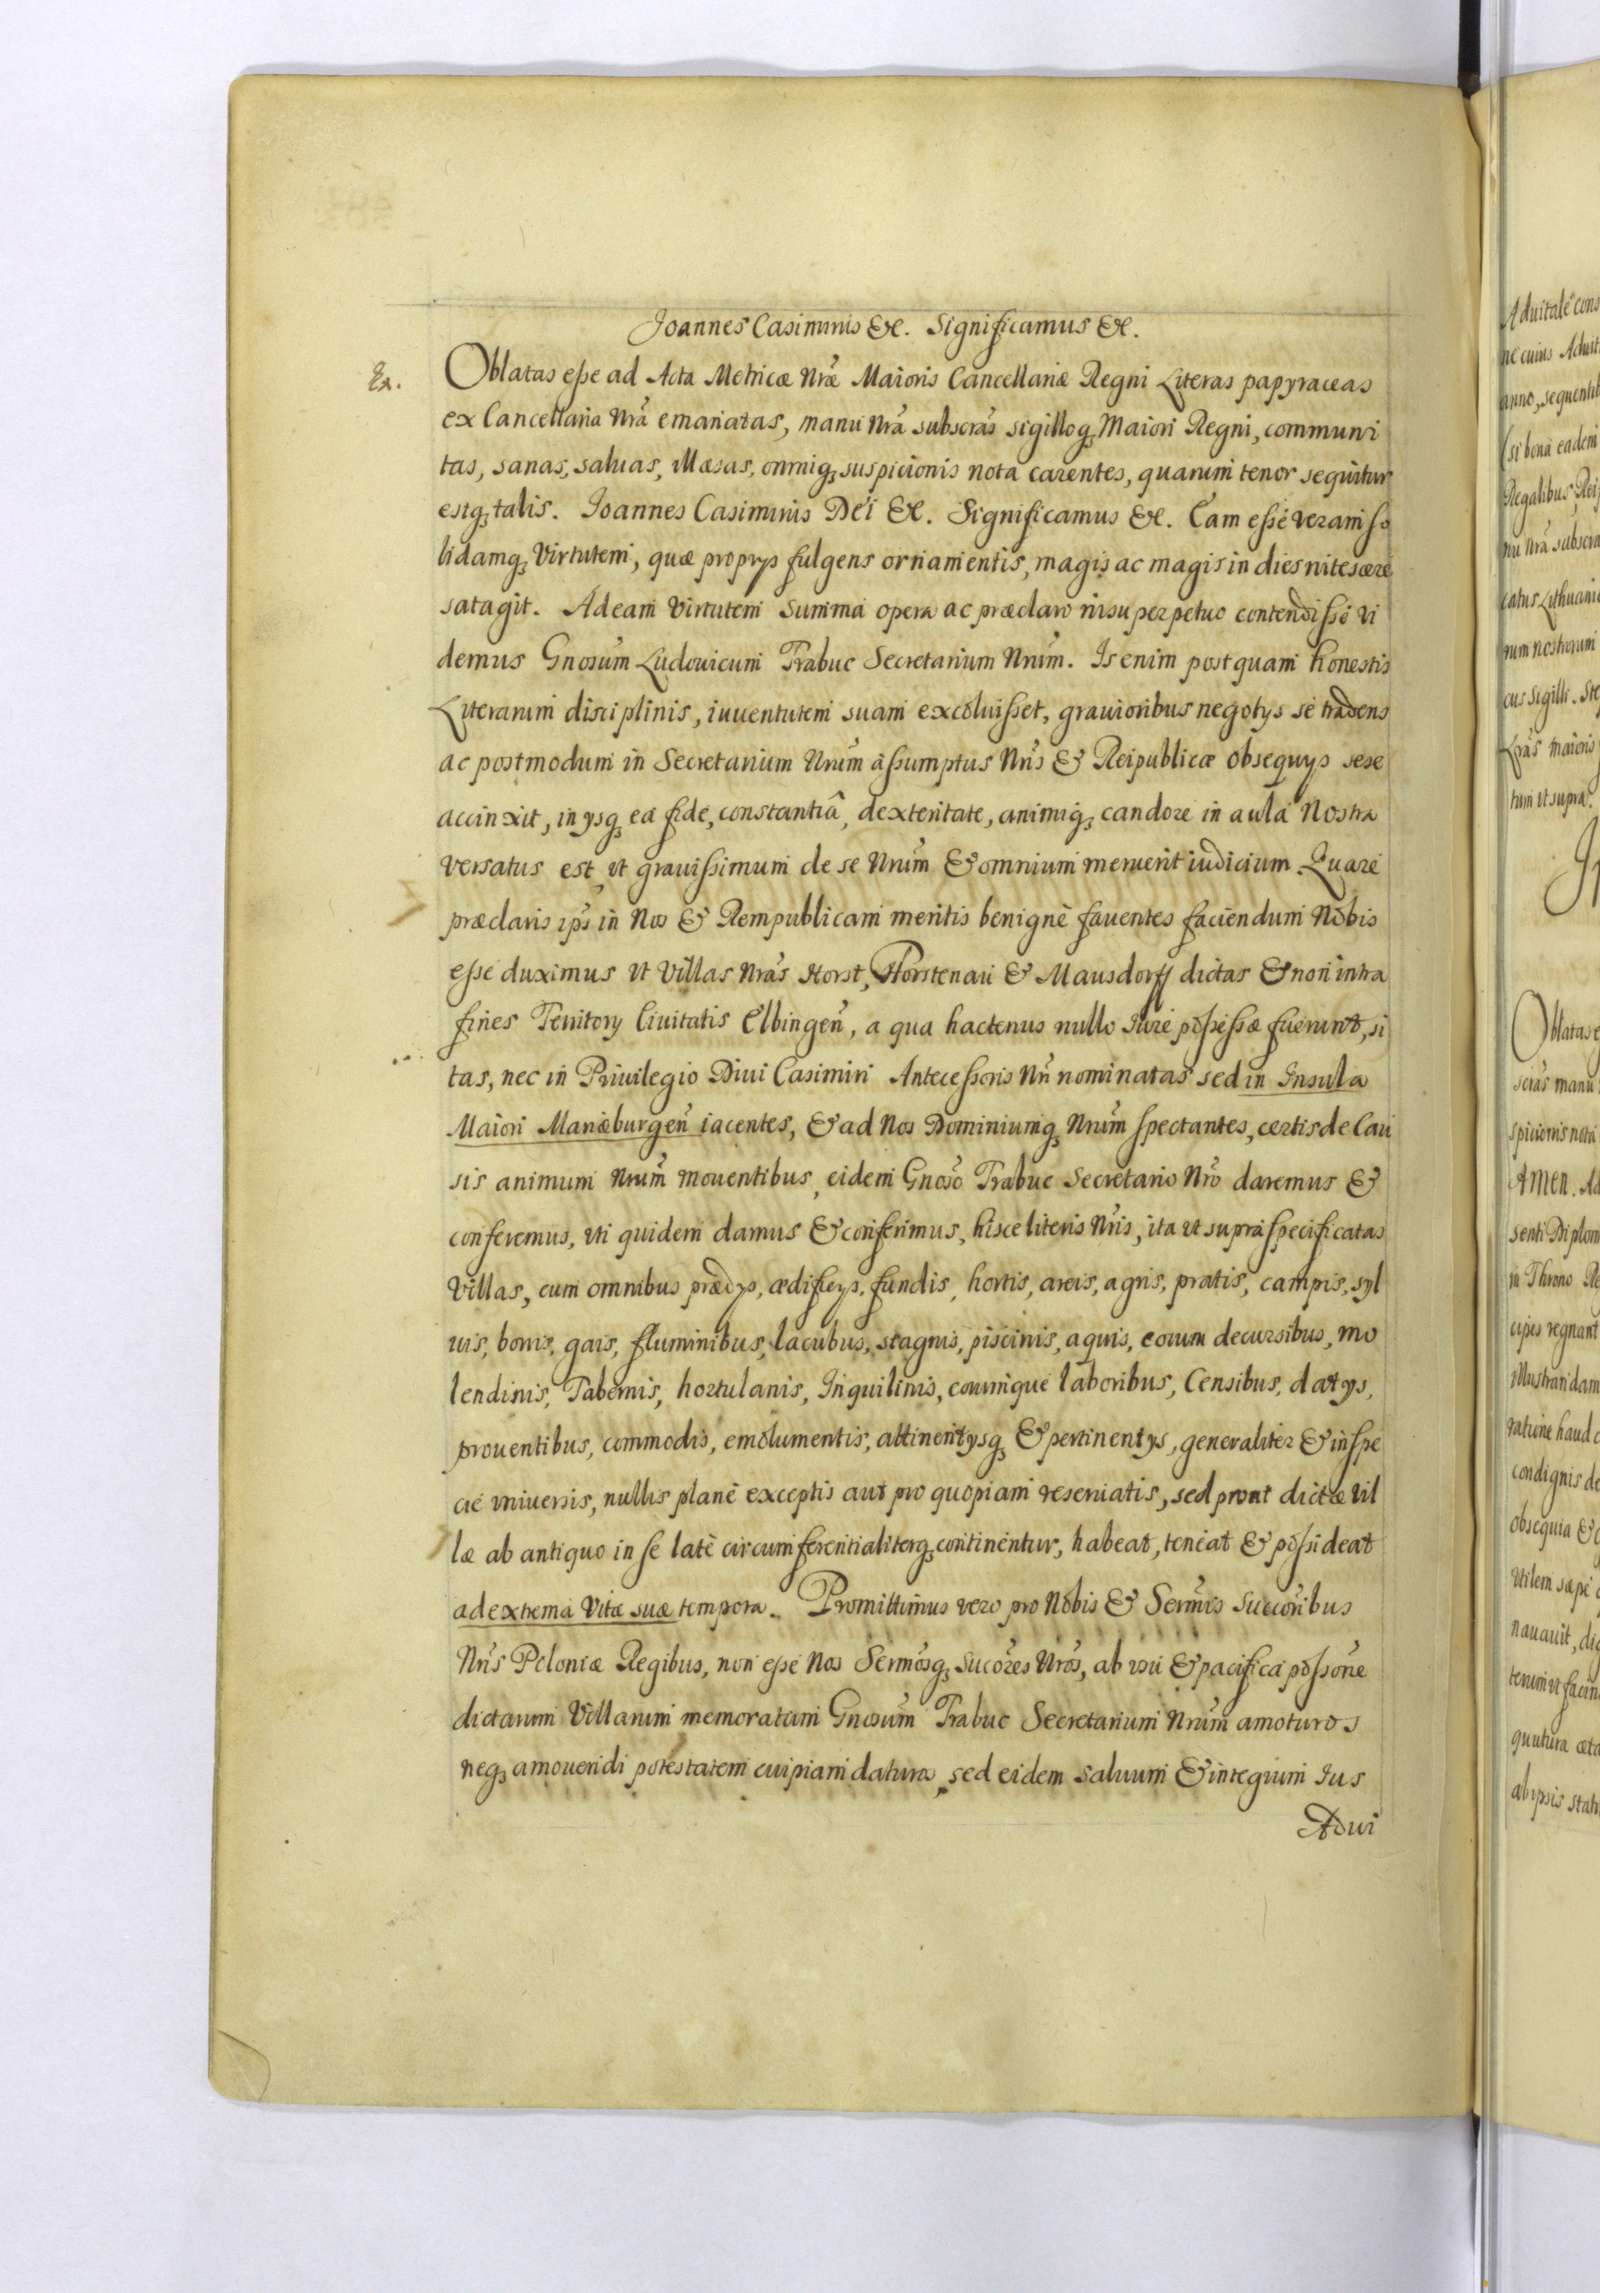 Joannes Casimirus &c. Significamus &c.
Ex.
Oblatas esse ad Acta Metricæ Nræ Maioris Cancellariæ Regni Literas papyraceas
ex Cancellaria Nrã emanatas, manu Nrã subscrãs sigilloq₃ Maiori Regni, communi
tas, sanas, saluas, illæsas, omniq₃ suspicionis nota carentes, quarum tenor sequitur
estq₃ talis. Joannes Casimirus Dei &c. Significamus &c. Eam esse veram so
lidamq₃ Virtutem, quæ proprys fulgens ornamentis, magis ac magis in dies nitescere
satagit. Ad eam Virtutem summa opera ac præclaro nisu perpetuo contendisse vi
demus Gnosum Ludouicum Trabuc Secretarium Nrum. Is enim postquam honestis
Literarum disciplinis, iuuentutem suam excoluisset, grauioribus negotys se tradens
ac postmodum in Secretarium Nrum assumptus Nris & Reipublicæ obsequys sese
accinxit, in ysq₃ ea fide, constantiâ, dexteritate, animiq₃ candore in aula Nostra
versatus est, vt grauissimum de se Nrum & omnium meruerit iudicium. Quare
præclaris ips̃ in Nos & Rempublicam meritis benignè fauentes faciendum Nobis
esse duximus vt Villas Nras Horst, Horstenau & Mausdorff dictas & non intra
fines Territory Ciuitatis Elbingen̄, a qua hactenus nullo Iure possessæ fuerunt, si
tas, nec in Priuilegio Diui Casimiri Antecessoris Nri nominatas sed in Insula
Maiori Mariæburgen̄ iacentes, & ad Nos Dominiumq₃ Nrum spectantes, certis de Cau
sis animum Nrum mouentibus, eidem Gnoso Trabuc Secretario Nro daremus &
conferemus, vti quidem damus & conferimus, hisce literis Nris, ita vt supra specificatas
Villas, cum omnibus prædys, ædificys, fundis, hortis, areis, agris, pratis, campis, syl
uis, boris, gais, fluminibus, lacubus, stagnis, piscinis, aquis, eorum decursibus, mo
lendinis, Tabernis, hortulanis, Inquilinis, eorumque laboribus, Censibus, datys,
prouentibus, commodis, emolumentis, attinentysq₃ & pertinentys, generaliter & in spe
cie vniuersis, nullis planè exceptis aut pro quopiam reseruatis, sed prout dictæ Vil
læ ab antiquo in se latè circumferentialiterq₃ continentur, habeat, teneat & possideat
ad extrema Vitæ suæ tempora. Promittimus vero pro Nobis & Sermis Succoribus
Nris Poloniæ Regibus, non esse Nos Sermosq₃ Sucores Nros, ab vsu & pacifica possone
dictarum Villarum memoratum Gnosum Trabuc Secretarium Nrum amoturos
neq₃ amouendi potestatem cuipiam daturos, sed eidem saluum & integrum Ius
Adui